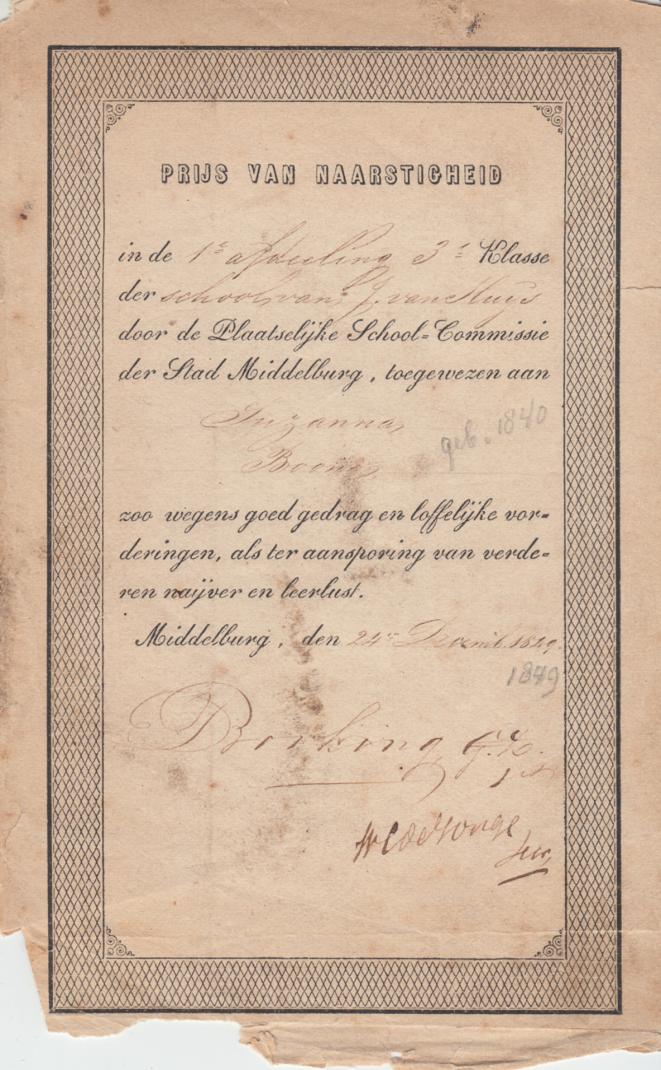 PRIJS VAN NAARSTIGHEID
in de 1e afdeeling 3e Klasse
der school van J. van Sluijs
door de Plaatselijke School-Commissie
der Stad Middelburg, toegewezen aan
Suzanna
geb. 1840
Boon
zoo wegens goed gedrag en loffelijke vor-
deringen, als ter aansporing van verde-
ren naijver en leerlust.
Middelburg, den 24e Decemb. 1849.
1849